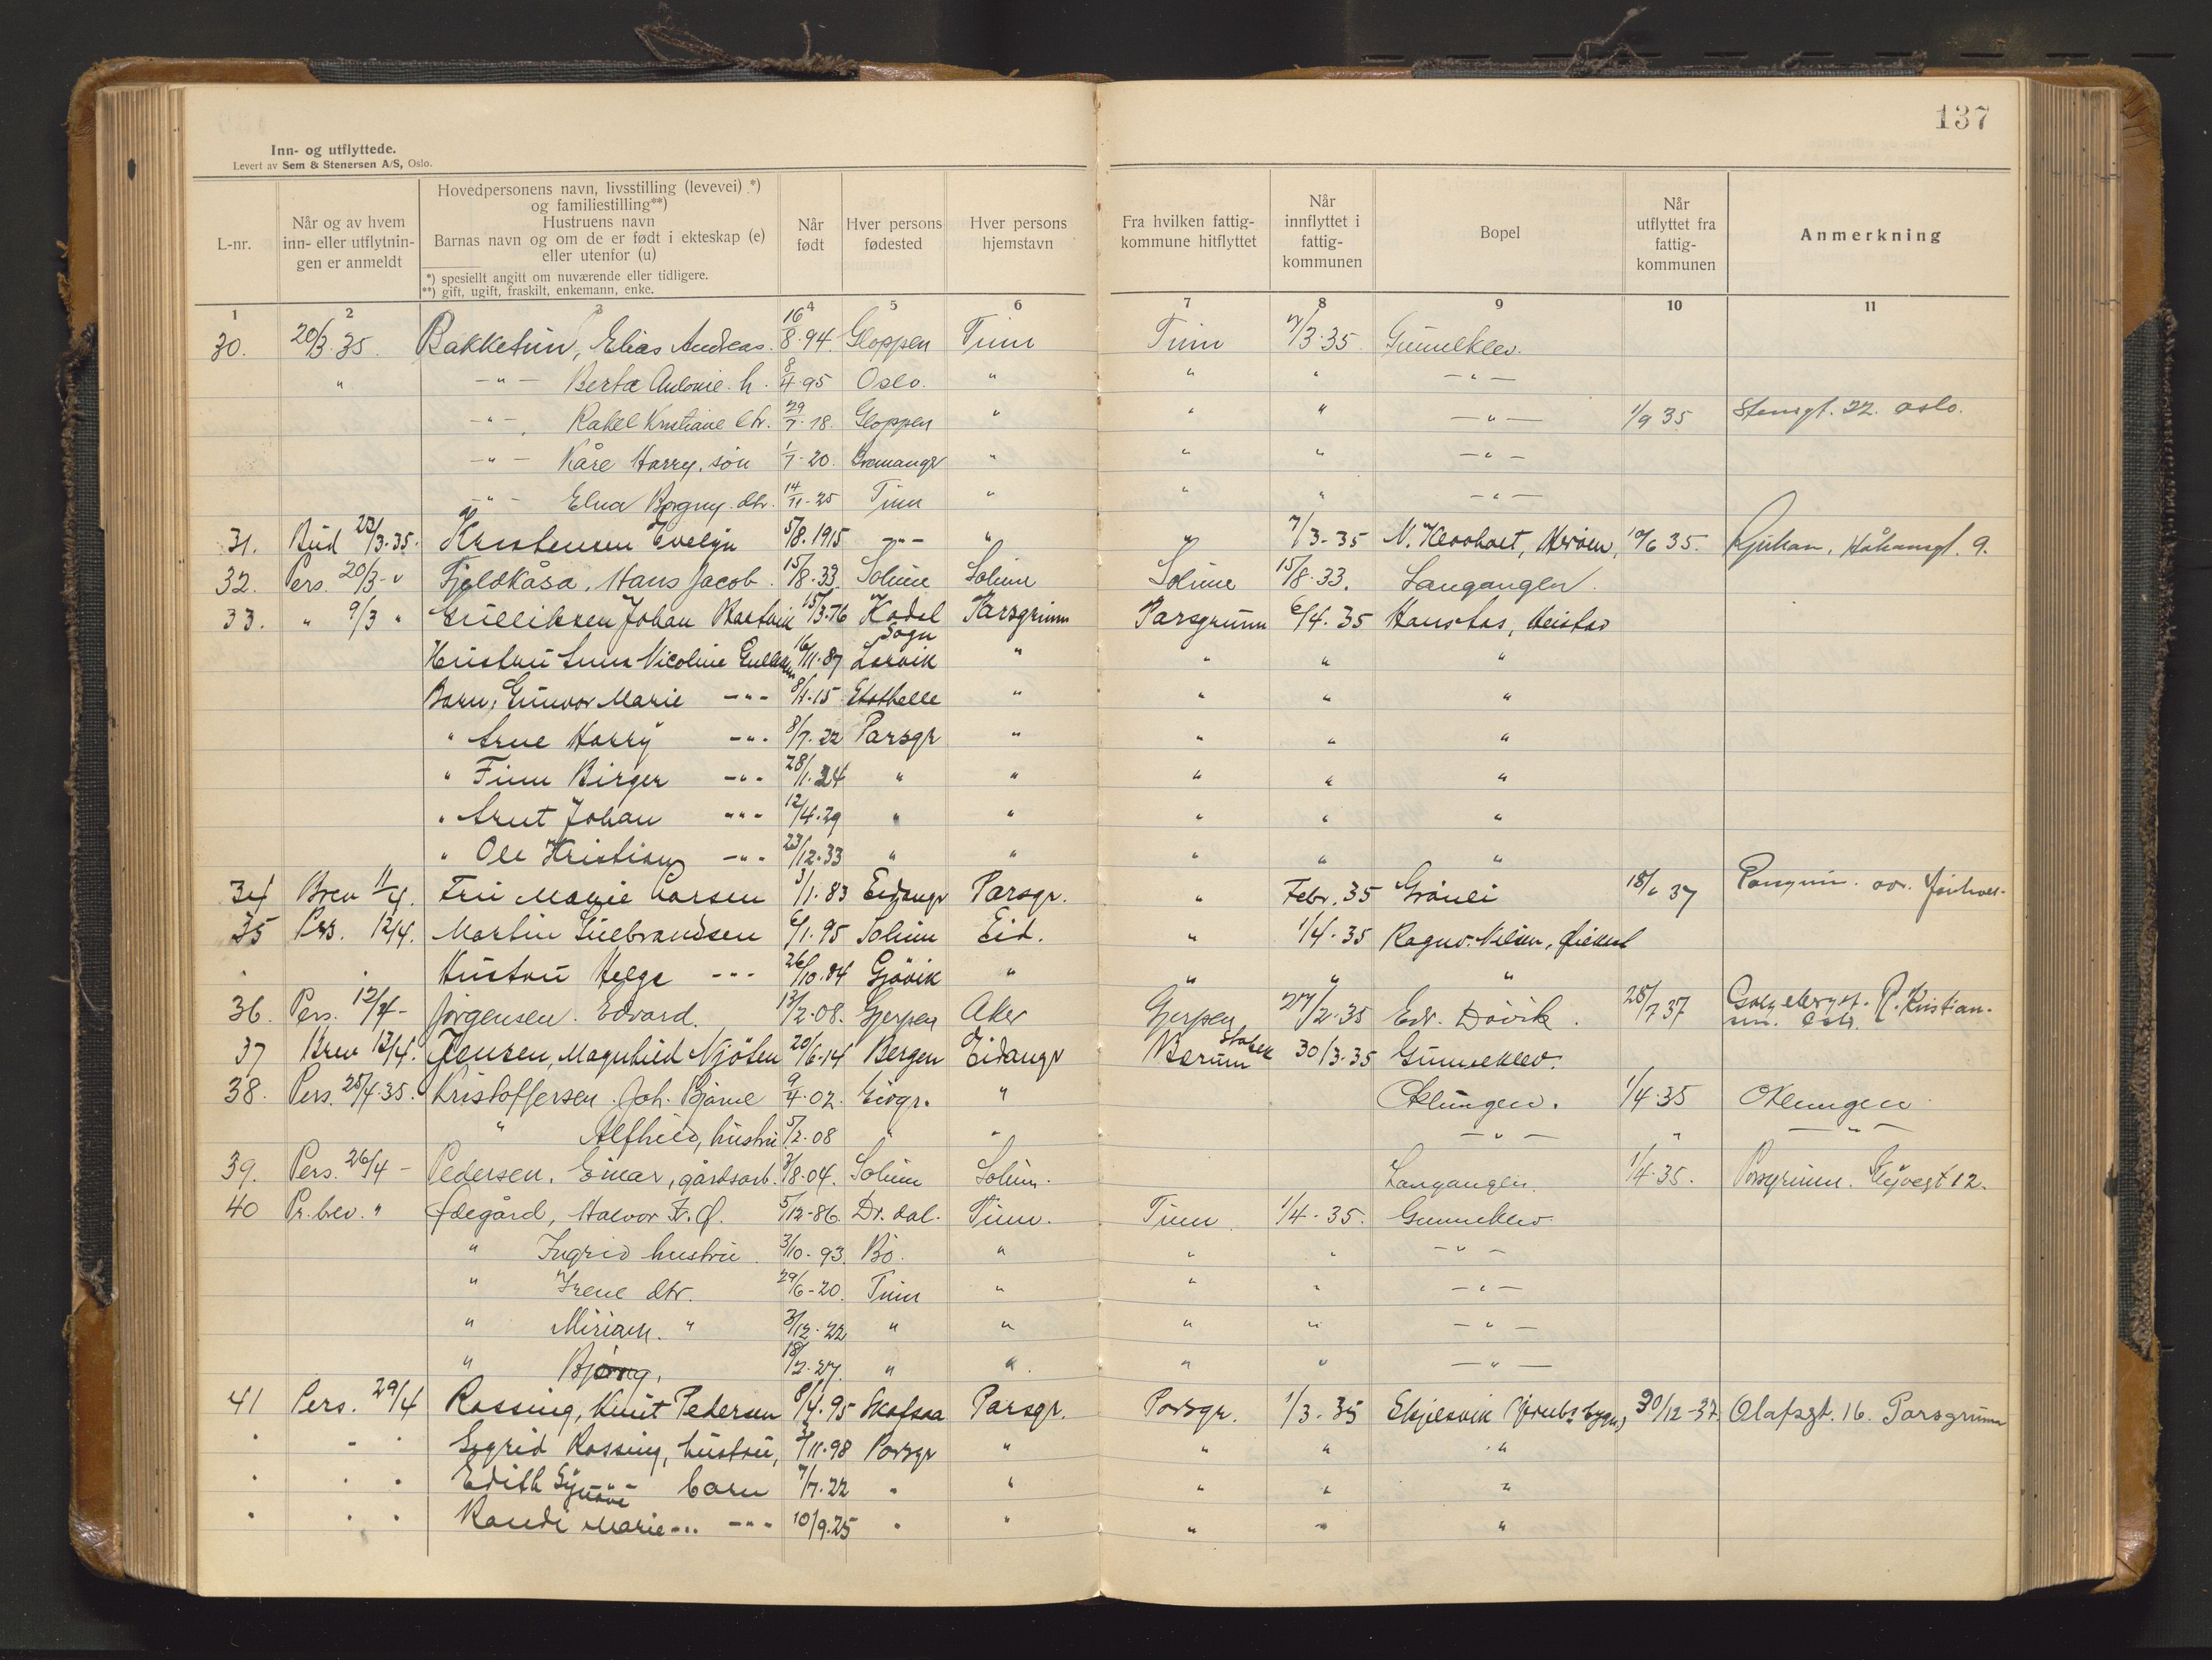 137
Inn- og utflyttede.
Levert av Sem & Stenersen A/S, Oslo.
L-nr.
Når og av hvem
inn- eller utflytnin-
gen er anmeldt
Hovedpersonens navn, livsstilling (levevei) *)
og familiestilling**)
Hustruens navn
Barnas navn og om de er født i ekteskap (e)
eller utenfor (u)
*) spesiellt angitt om nuværende eller tidligere.
**) gift, ugift, fraskilt, enkemann, enke.
Når
født
Hver persons
fødested
Hver persons
hjemstavn
Fra hvilken fattig-
kommune hitflyttet
Når
innflyttet i
fattig-
kommunen
Bopel
Når
utflyttet fra
fattig-
kommunen
Anmerkning
1 2 3 4 5 6 7 8 9 10 11
30. 20/3.35. Bakketun, Elias Andreas. 16/8.94. Gloppen Tinn Tinn 7/3.35. Gunneklev.
" -"- Berta Antonie. h. 8/4.95 Oslo. " " " -"-
-"- Rakel Kristiane dtr. 29/7.18. Gloppen " " " -"- 1/9 35 Stensgt. 22. Oslo.
-"- Kåre Harry, søn 1/7-20. Bremanger " " " -"-
-"- Elna Borgny. dtr. 14/11-25 Tinn " " " -"-
31. Bud 23/3.35. Kristensen Evelyn 5/8.1915 -"- " " 7/3-35 N. Klovholt, Herøen, 10/6 35. Rjukan, Håkonsgt. 9.
32. Pers. 20/3-" Fjeldkåsa, Hans Jacob. 15/8.33 Solum Solum Solum 15/8.33. Langangen.
33. " 9/3 " Gulliksen Johan 15/3.76 Porsgrunn Porsgrunn 6/4.35 Heistad
Sogn
Hustru Anna Nicoline Gulliksen 16/11.87 Larvik " " " "
Barn, Gunvor Marie -"- 8/4.15 Stathelle " " " "
" Arne Harry -"- 8/7.22 Porsgr " " " "
" Finn Birger -"- 28/1.24 " " " " "
" Arnt Johan -"- 12/4.29 " " " " "
" Ole Kristian -"- 23/12.33 " " " " "
34 Brev 11/4. Fru Marie Larsen 3/1.83 Eidanger Porsgr. " Febr. 35 Grønli 18/6 37
35 Pers. 12/4. Martin Gulbrandsen 6/1.95 Solum Eid. " 1/4.35 Ragnv. Nilsen,
Hustru Helga -"- 26/10.04 Gjøvik " " " "
36. Pers. 12/4- Jørgensen. Edvard. 13/2.08. Gjerpen Aker Gjerpen 27/2.35 Edv. Døvik. 28/7 37
37 Brev 13/4. Jensen, Magnhild Njøten 20/6.14 Bergen Eidanger Bærum Stabek 30/3.35 Gunneklev.
38. Pers. 25/4.35. Kristoffersen. Joh. Bjarne 9/4.02. Eidgr. " Oklungen. 1/4.35 Oklungen
" Alfhild, hustru 5/2.08 " " -"- " -"-
39. Pers. 26/4- Pedersen, Einar, gårdsarb. 3/8.04. Solum Solum. Langangen. 1/4.35.
40 Pr. brev. " Ødegård, Halvor 5/12-86. Dr. dal. Tinn. Tinn. 1/4.35. Gunneklev
" Ingrid hustru 3/10-93. Bø. " " " -"-
" Irene dtr. 29/6-20. Tinn " " " -"-
" Miriam. " 3/12.22 " " " " -"-
" Bjørg, 18/7.27. " " " " -"-
41 Pers. 29/4 Rossing, Knut Pedersen 8/4.95 Skafsaa Porsgr. Porsgr. 1/3.35 30/12-37. Olafsgt. 16. Porsgrunn
Sigrid Rossing, hustru, 3/11.98 Porsgr " " " "
Edith Synnøve -"- barn 7/7.22 " " " " "
Randi Marie -"- -"- 10/9.25 " " " " "